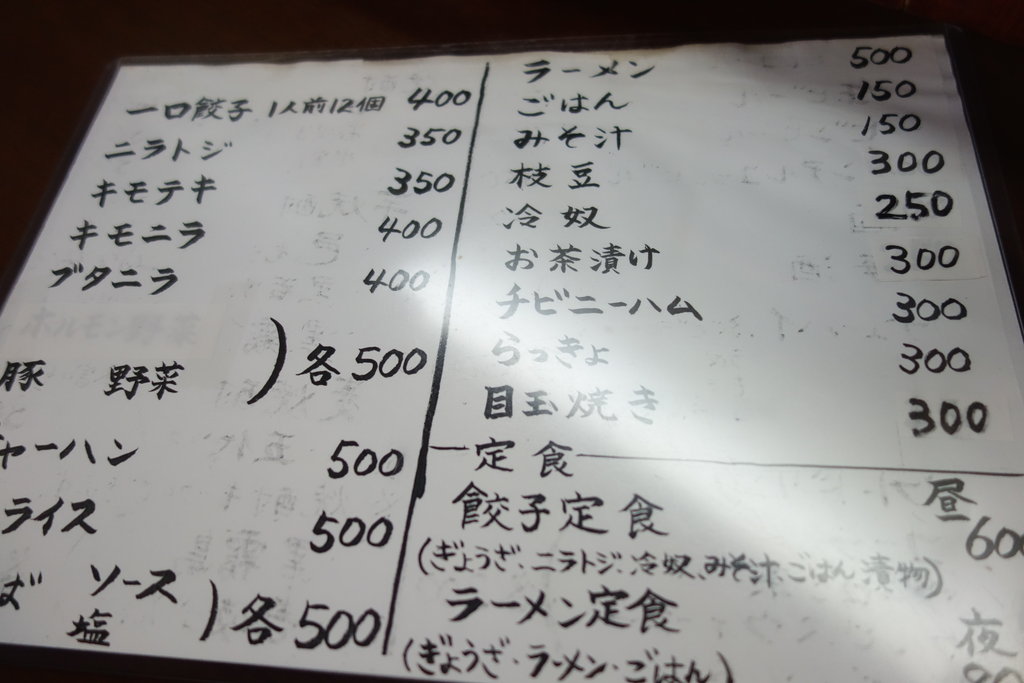 一口餃子 1人前12個 400
ニラトジ 350
キモテキ 350
キモニラ 400
ブタニラ 400
ホルモン野菜
豚 野菜 ) 各500
ャーハン 500
ライス 500
ば ソース
塩 ) 各500
ラーメン 500
ごはん 150
みそ汁 150
枝豆 300
冷奴 250
お茶漬け 300
チビニーハム 300
らっきょ 300
目玉焼き 300
定食
餃子定食 昼 600
(ぎょうざ・ニラトジ・冷奴、みそ汁・ごはん漬物)
ラーメン定食 夜
(ぎょうざ・ラーメン・ごはん)